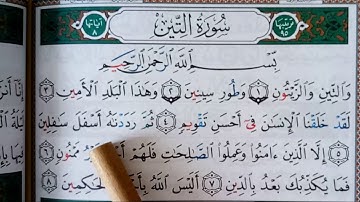 ترتيبها ٩٥
سُورَةُ التِّينِ
آياتها ٨
بِسْمِ اللَّهِ الرَّحْمَٰنِ الرَّحِيمِ
وَالتِّينِ وَالزَّيْتُونِ ١ وَطُورِ سِينِينَ ٢ وَهَٰذَا الْبَلَدِ الْأَمِينِ ٣
لَقَدْ خَلَقْنَا الْإِنسَانَ فِي أَحْسَنِ تَقْوِيمٍ ٤ ثُمَّ رَدَدْنَاهُ أَسْفَلَ سَافِلِينَ
٥ إِلَّا الَّذِينَ ءَامَنُوا وَعَمِلُوا الصَّالِحَاتِ فَلَهُمْ مَمْنُونٍ ٦
فَمَا يُكَذِّبُكَ بَعْدُ بِالدِّينِ ٧ أَلَيْسَ اللَّهُ بِأَحْكَمِ الْحَاكِمِينَ ٨